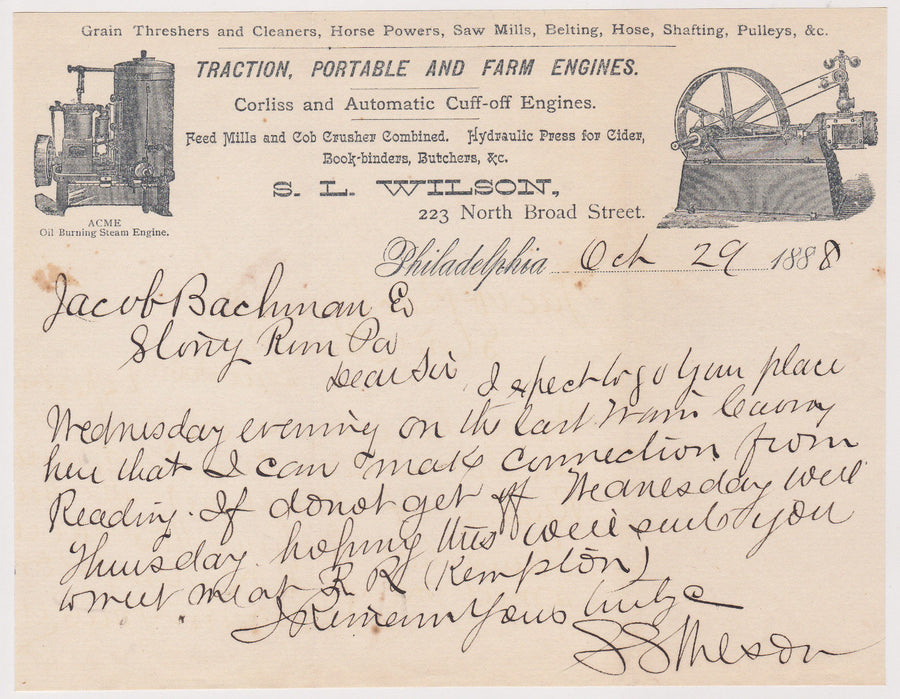 Grain Threshers and Cleaners, Horse Powers, Saw Mills, Belting, Hose, Shafting, Pulleys, &c.
TRACTION, PORTABLE AND FARM ENGINES.
Corliss and Automatic Cuff-off Engines.
Feed Mills and Cob Crusher Combined. Hydraulic Press for Cider,
Book-binders, Butchers, &c.
S. L. WILSON,
223 North Broad Street.
ACME
Oil Burning Steam Engine.
Philadelphia Oct 29 1888
Jacob Bachman
Stony Run Pa
Dear Sir I expect to go your place
Wednesday evening on the last train leaving
here that I can make connection from
Reading. If donot get off Wednesday will
Thursday. hoping this will suit you
to meet me at R R (Kempton)
I Remain Yours truly
S L Wilson